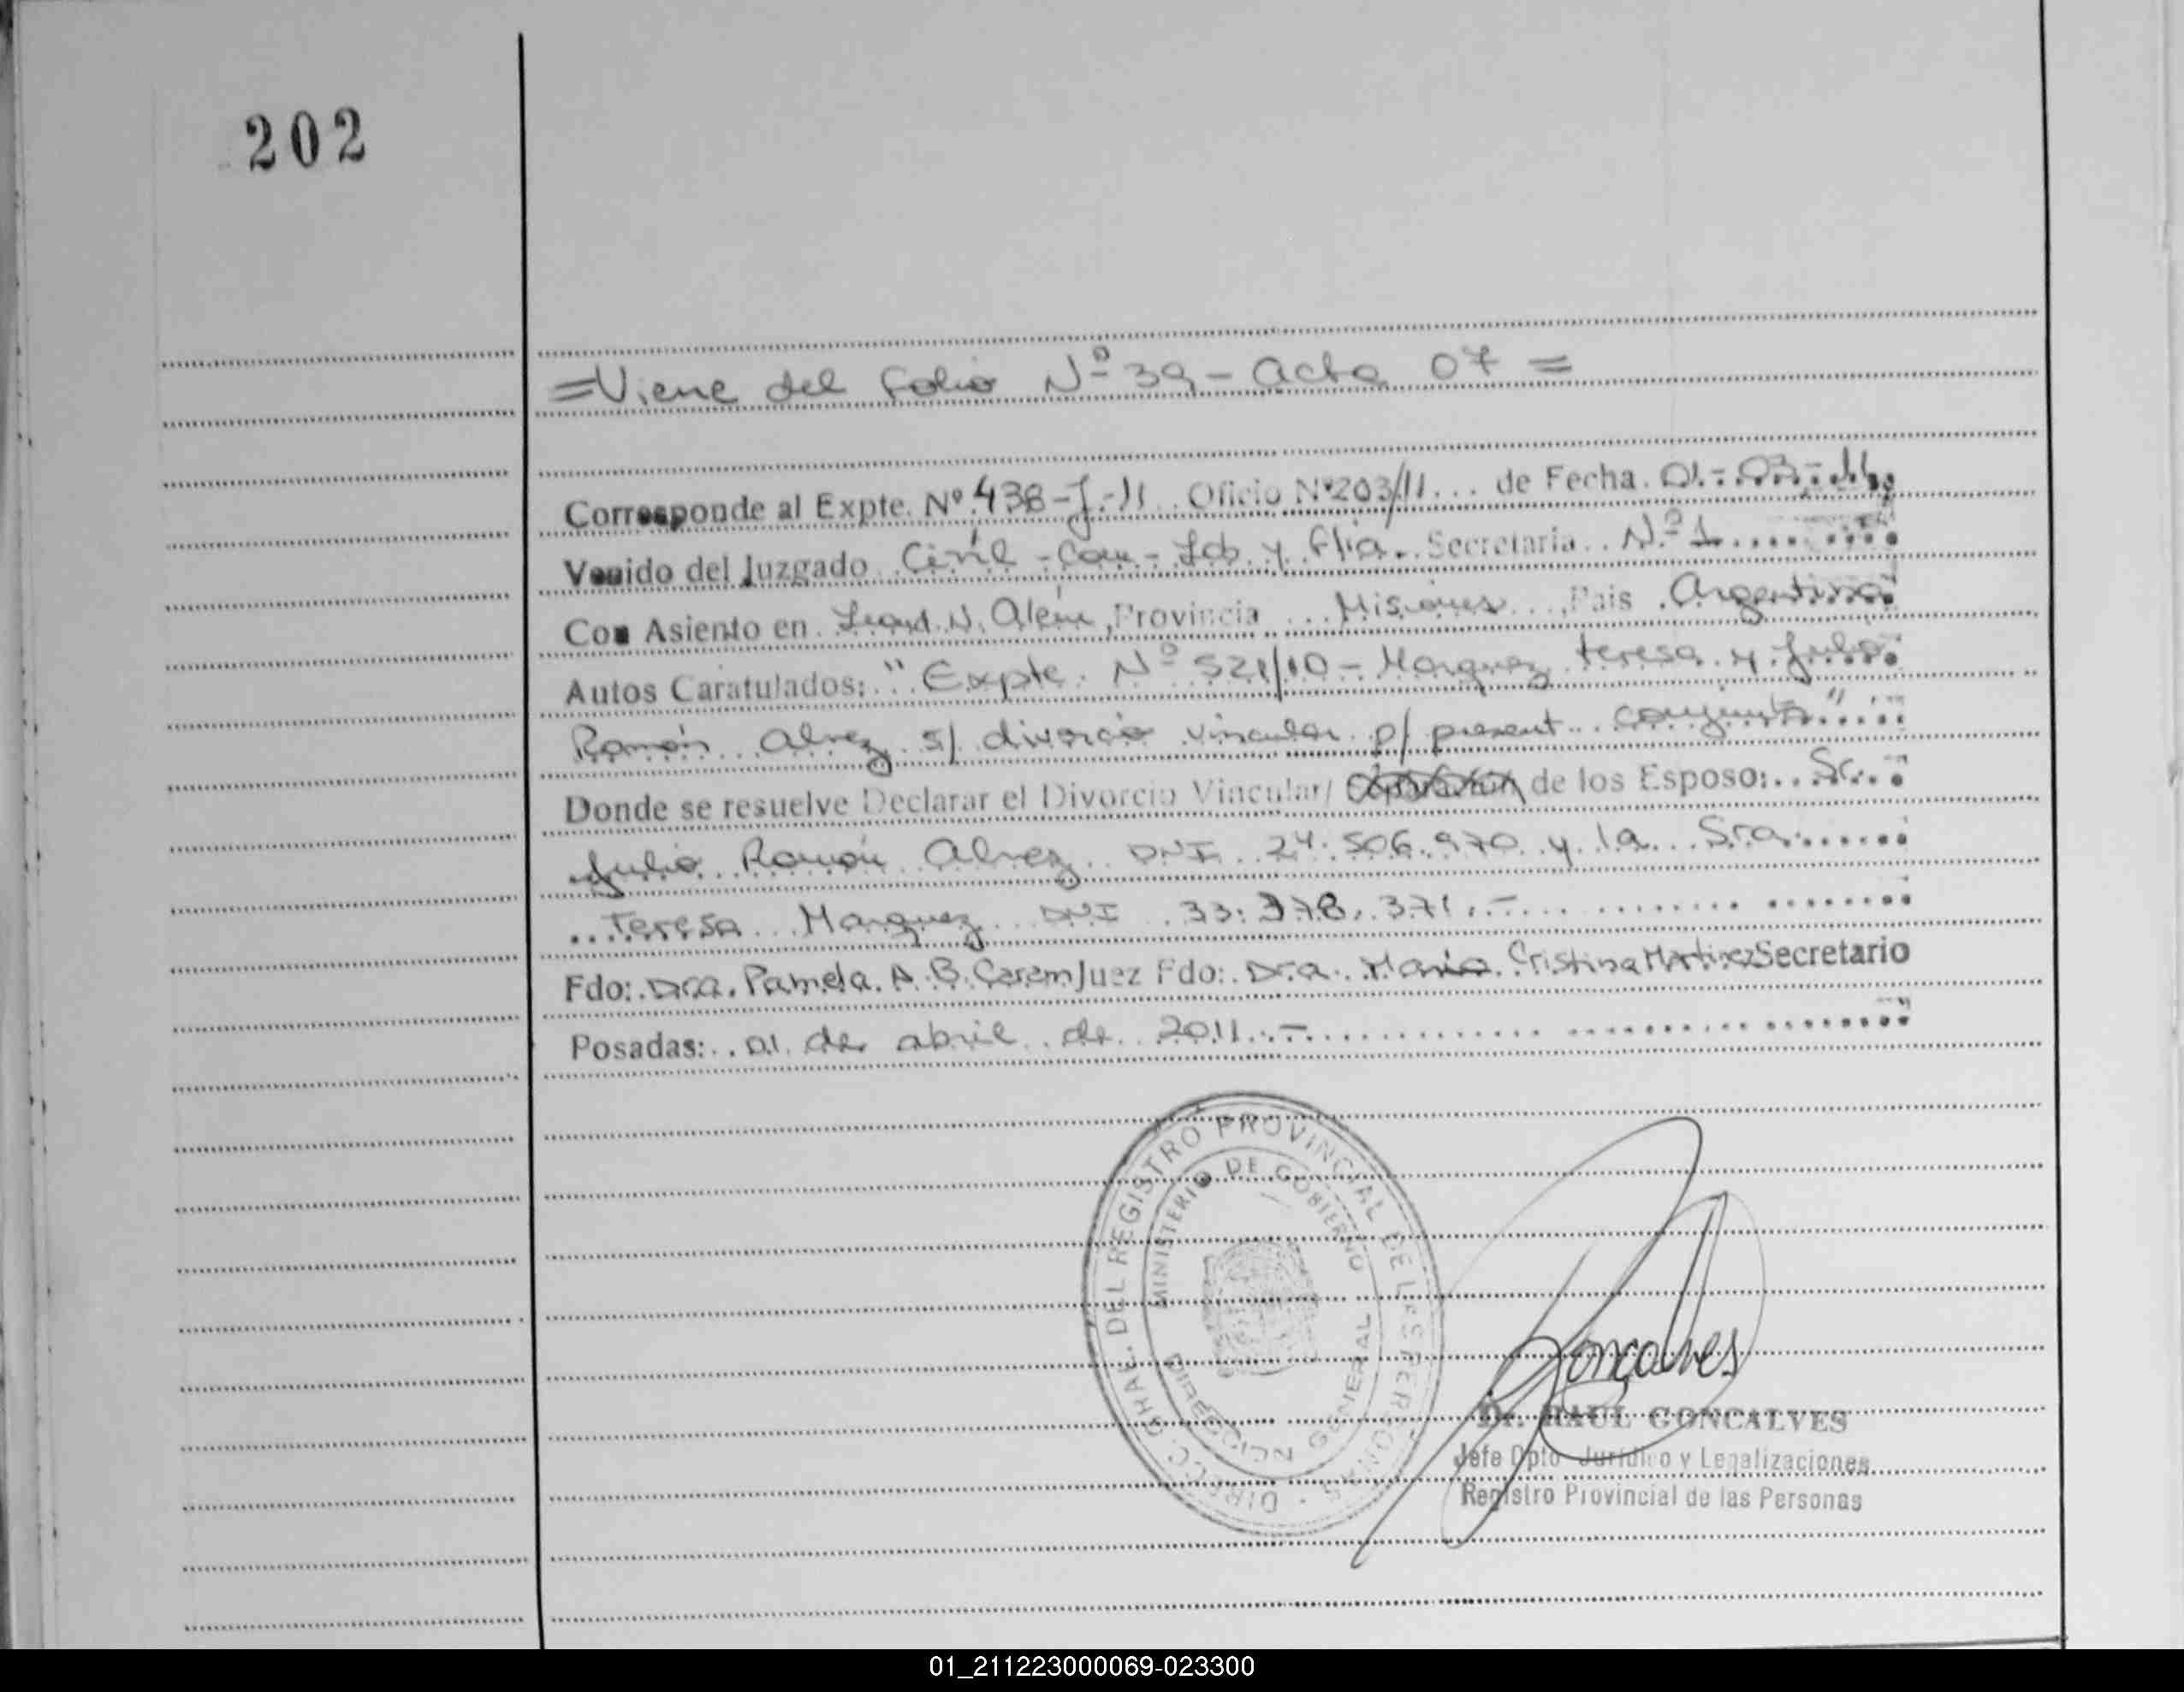 202
=Viene del folio Nº 39 - Acta 07 =
Corresponde al Expte. Nº 438-J-11 Oficio Nº 203/11 de Fecha 01-03-11,
Venido del Juzgado Civil - Com - Lab y Flia. Secretaria Nº 1
Con Asiento en Leand. N. Alem, Provincia Misiones, Pais Argentina
Autos Caratulados: "Expte. Nº 521/10 - Marquez teresa y Julio
Ramón Alvez s/ divorcio vincular p/ present. conjunta"
Donde se resuelve Declarar el Divorcio Vincular/ de los Esposo: Sr.
Julio Ramón Alvez DNI 24.506.970 y la Sra.
Teresa Marquez DNI 33.378.371.-
Fdo: Dra. Pamela A. B. Carem Juez Fdo: Dra. Maria Cristina Martinez Secretario
Posadas: 01 de abril de 2011.-
DIRECC. GRAL. DEL REGISTRO PROVINCIAL DE LAS PERSONAS
MINISTERIO DE GOBIERNO
DIRECCION GENERAL
Goncalves
Dr. RAUL GONCALVES
Jefe Dpto Jurídico y Legalizaciones
Registro Provincial de las Personas
01_211223000069-023300